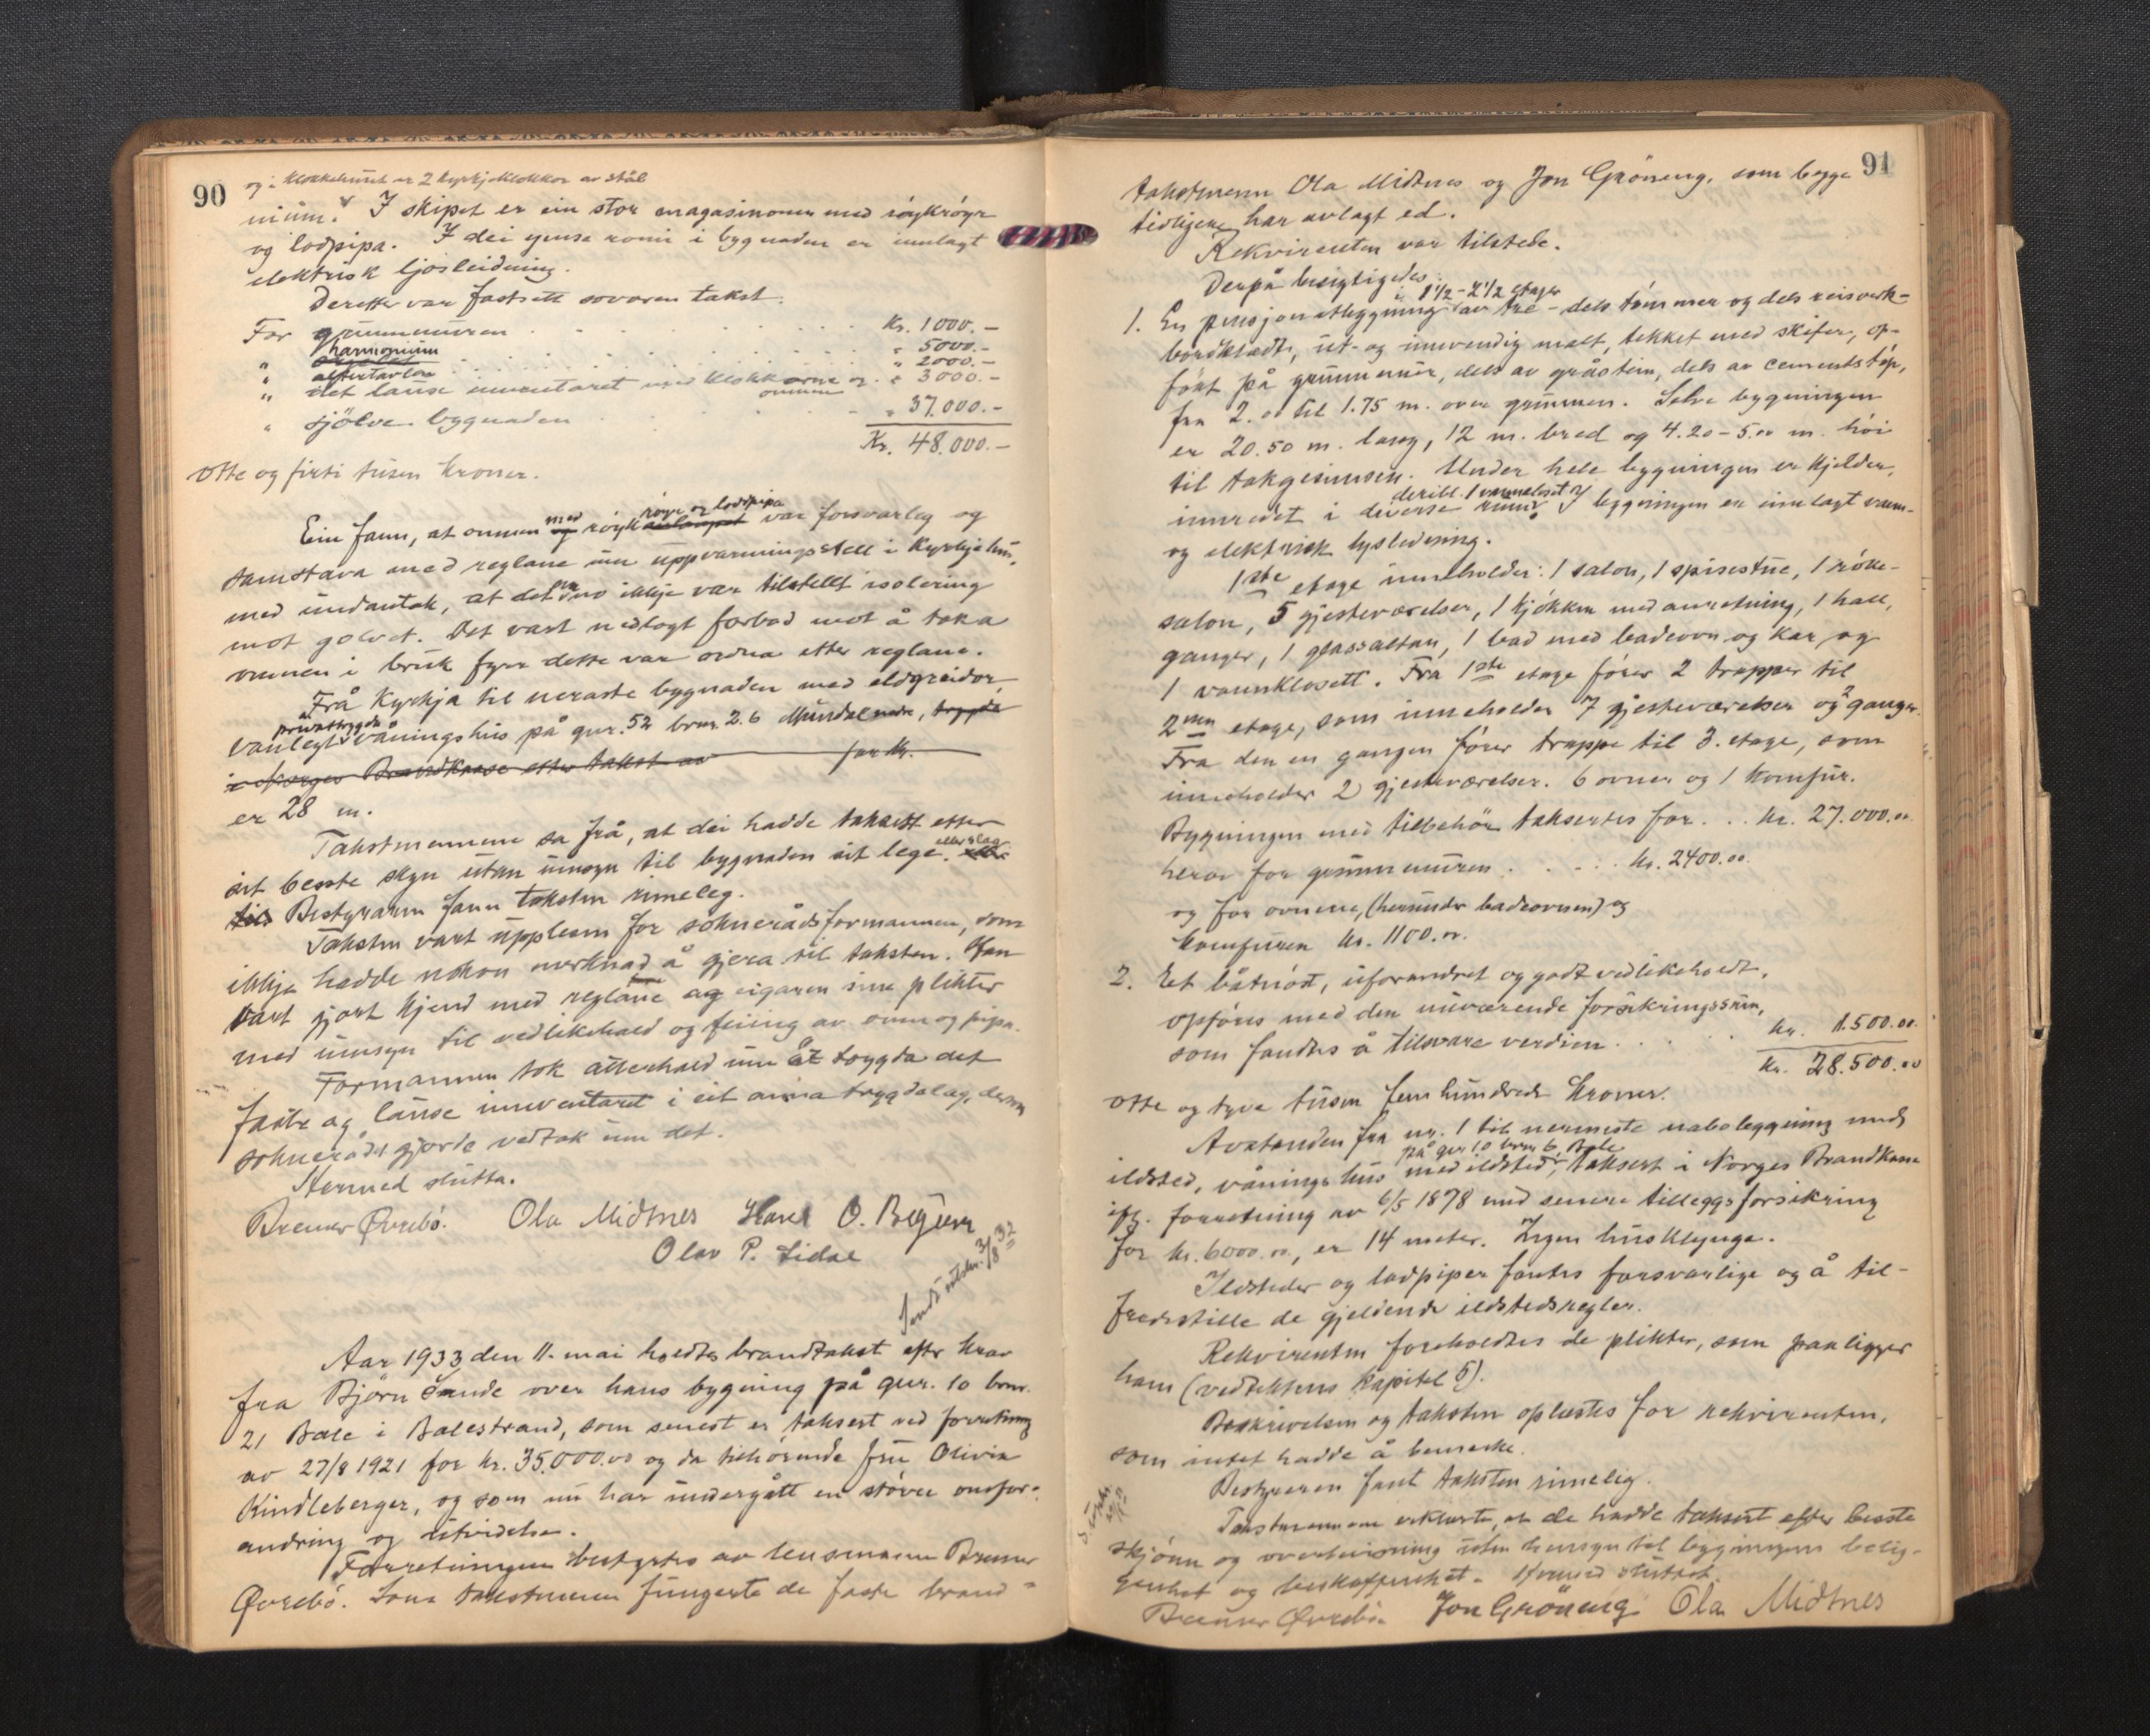 90
og i klokkehuset er 2 kyrkjeklokkor av stål
nium. I skipet er ein stor magasinomn med röykröyr
og lodpipa. I dei ymse romi i bygnaden er innlagt
elektrisk ljosleidning.
Deretter var fastsett sovoren takst:
For grunnmuren Kr. 1000.-
" harmonium " 5000.-
" altertavlen " 2000.-
" det lause inventaret med klokkorne og omnen " 3000.-
" sjölve bygnaden " 37.000.-
Kr. 48.000.-
Otte og firti tusen kroner.
Ein fann, at omnen med og röyk röyr og lodpipa var forsvarleg og
samstava med reglane um uppvarmingsstell i kyrkjehus,
med undantak, at det no ikkje var tilstellt isolering
mot golvet. Det vart nedlagt forbod mot å taka
omnen i bruk fyrr dette var ordna etter reglane.
Frå kyrkja til næraste bygnaden med eldgreidor,
vanlegt privattrygda våningshus på gnr. 52 brnr. 2.6 Mundal nedre, trygda
i Norges Brandkasse etter takst av for kr.
er 28 m.
Takstmennene sa frå, at dei hadde taksett etter
sit beste skyn utan umsyn til bygnaden sit lege eller slag.
til Bestyraren fann taksten rimeleg.
Taksten vart upplesen for soknerådsformannen, som
ikkje hadde nokon merknad å gjera til taksten. Han
vart gjort kjend med reglane og eigaren sine plikter
med umsyn til vedlikehald og feiing av omn og pipa.
Formannen tok atterhald um åt trygda det
faste og lause inventaret i eit anna trygdelag, dersom
soknerådet gjorde vedtak um det.
Hermed slutta.
Bremer Øvrebö. Ola Midtnes Hans O. Bøyum
Olav P. Lidal
Sendt utskr. 3/8 32
Aar 1933 den 11. mai holdtes brandtakst efter krav
fra Björn Sande over hans bygning på gnr. 10 brnr.
21 Bale i Balestrand, som senest er taksert ved forretning
av 27/8 1921 for kr. 35.000.00 og da tilhörende fru Olivia
Kindleberger, og som nu har undergått en större omfor-
andring og utvidelse.
Forretningen bestyrtes av lensmann Bremer
Øvrebö. Som takstmenn fungerte de faste brand-
91
takstmenn Ola Midtnes og Jon Gröneng, som begge
tidligere har avlagt ed.
Rekvirenten var tilstede.
Derpå besigtigedes:
1. En pensjonatbygning i 1 1/2 - 2 1/2 etager av tre - dels tömmer og dels reisverk-
bordklædt, ut- og innvendig malt, tekket med skifer, op-
fört på grunnmur, dels av gråstein, dels av cementstöp,
fra 2.00 til 1.75 m. over grunnen. Selve bygningen
er 20.50 m. lang, 12 m. bred og 4.20-5.00 m. höi
til takgesimsen. Under hele bygningen er kjelder,
innredet i diverse rum, deribl. 1 vannklosett. I bygningen er innlagt vann-
og elektrisk lysledning.
1ste etage inneholder: 1 salon, 1 spisestue, 1 röke-
salon, 5 gjesteværelser, 1 kjökken med anretning, 1 hall,
ganger, 1 glassaltan, 1 bad med badeovn og kar og
1 vannklosett. Fra 1ste etage förer 2 trapper til
2nen etage, som inneholder 7 gjesteværelser og 2 ganger.
Fra den en gangen förer trappe til 3. etage, som
inneholder 2 gjesteværelser. 6 ovner og 1 komfur.
Bygningen med tilbehör taksertes for . . kr. 27.000.00
herav for grunnmuren . . . . kr. 2400.00
og for ovnene, (herunder badeovnen) og
komfuren kr. 1100.00.
2. Et båtnöst, uforandret og godt vedlikeholdt,
opföres med den nuværende forsikringssum,
som fandtes å tilsvare verdien . . . . kr. 1.500.00
kr. 28.500.00
Otte og tyve tusen fem hundrede kroner.
Avstanden fra nr. 1 til nermeste nabobygning med
ildsted, våningshus på gnr. 10 brnr. 6, Bale med ildsted, taksert i Norges Brandkasse
ifg. forretning av 6/5 1878 med senere tilleggsforsikring
for kr. 6000.00, er 14 meter. Ingen husklynge.
Ildsteder og lodpiper fantes forsvarlige og å til-
fredsstille de gjeldende ildstedsregler.
Rekvirenten foreholdtes de plikter, som paaligger
ham (vedtektens kapitel 5).
Beskrivelsen og taksten oplestes for rekvirenten,
som intet hadde å bemerke.
Bestyreren fant taksten rimelig.
Takstmennene erklærte, at de hadde taksert efter beste
skjönn og overbevisning uten hensyn til bygningens belig-
genhet og beskaffenhet. Hermed sluttet.
Bremer Øvrebö. Jon Gröneng Ola Midtnes